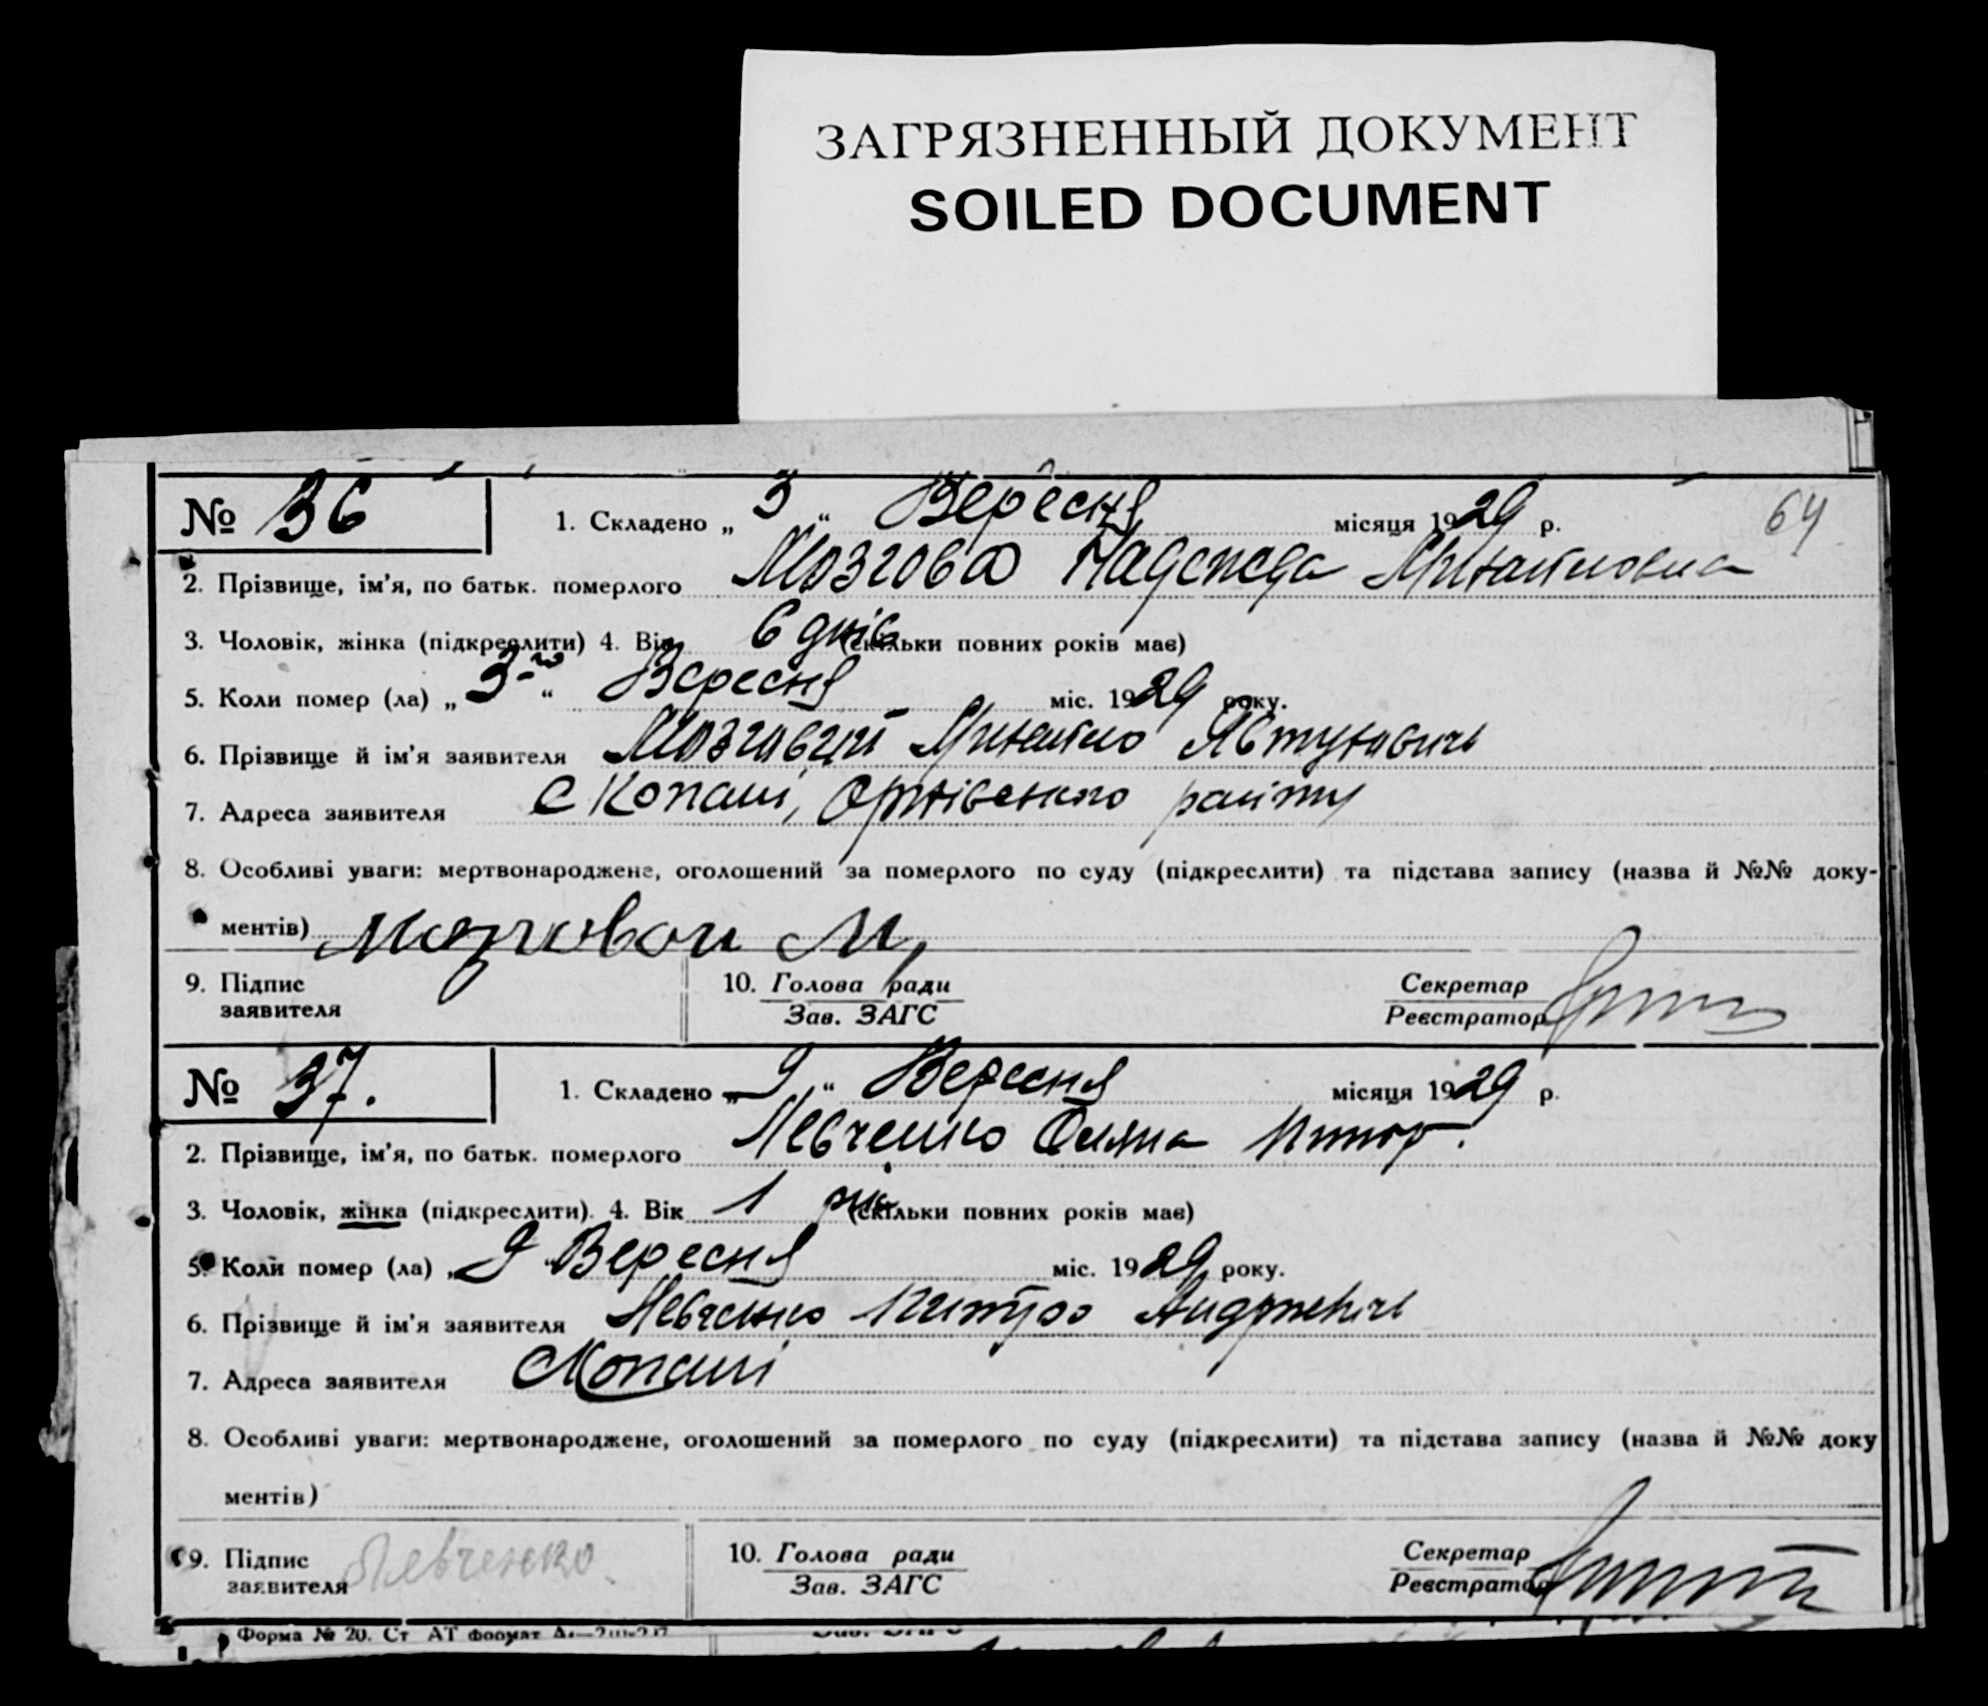 ЗАГРЯЗНЕННЫЙ ДОКУМЕНТ
SOILED DOCUMENT
64
№ 36
1. Складено „ 3 “ Вересня місяця 1929 р.
2. Прізвище, ім’я, по батьк. померлого Мозгова Надежда Михайловна
3. Чоловік, жінка (підкреслити) 4. Вік 6 днів (скільки повних років має)
5. Коли помер (ла) „ 3-го “ Вересня міс. 1929 року.
6. Прізвище й ім’я заявителя Мозговий Михайло Явтухович
7. Адреса заявителя с Копані, Оріхівського району
8. Особливі уваги: мертвонароджене, оголошений за померлого по суду (підкреслити) та підстава запису (назва й №№ доку-
ментів)
Мозговой М
9. Підпис
заявителя
10. Голова ради
Зав. ЗАГС
Секретар
Реєстратор
№ 37.
1. Складено „ 9 “ Вересня місяця 1929 р.
2. Прізвище, ім’я, по батьк. померлого Левченко
3. Чоловік, жінка (підкреслити). 4. Вік 1 рік (скільки повних років має)
5. Коли помер (ла) „ 9 “ Вересня міс. 1929 року.
6. Прізвище й ім’я заявителя Левченко Андріевич
7. Адреса заявителя с Копані
8. Особливі уваги: мертвонароджене, оголошений за померлого по суду (підкреслити) та підстава запису (назва й №№ доку
ментів)
9. Підпис
заявителя Левченко
10. Голова ради
Зав. ЗАГС
Секретар
Реєстратор
Форма № 20. Ст АТ формат